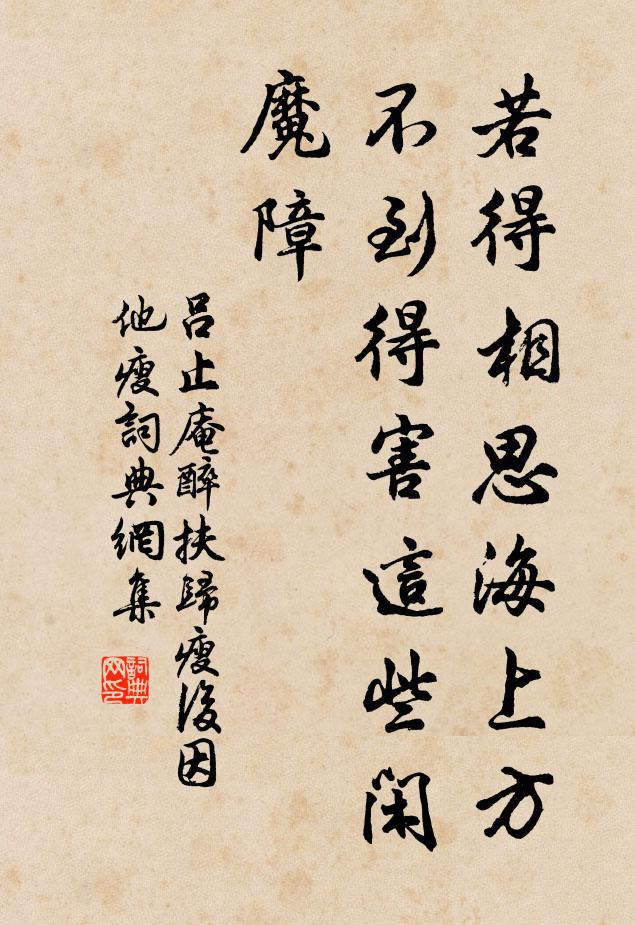 若得相思海上方
不到得害這些閑
魔障
呂止庵醉扶歸瘦後因
他瘦詞典網集
詞典網印